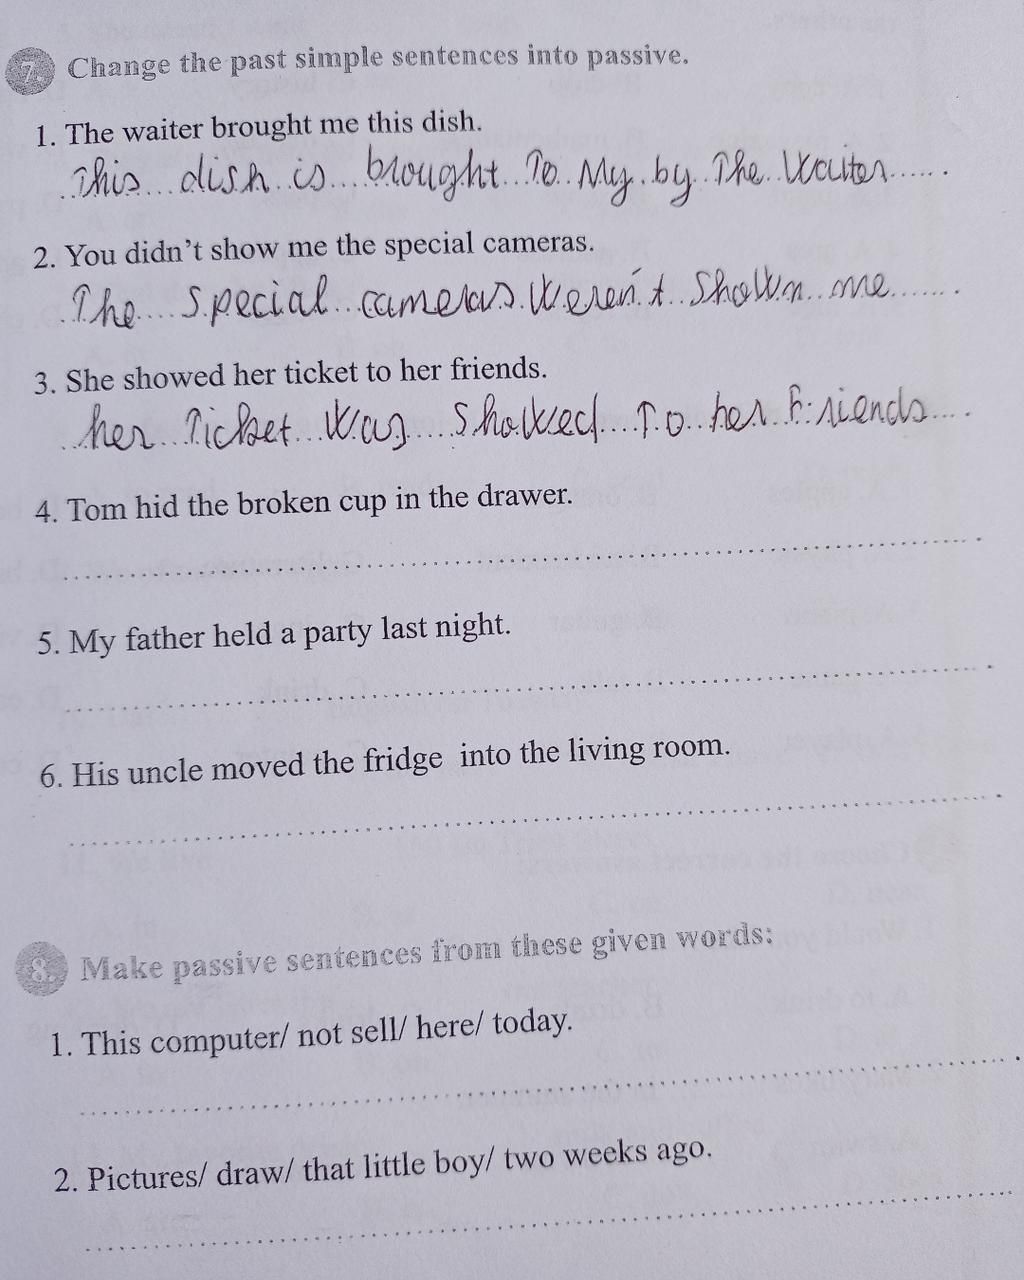 7. Change the past simple sentences into passive.
1. The waiter brought me this dish.
This dish is brought To My by The Waiter
2. You didn't show me the special cameras.
The special cameras Weren't Shown me
3. She showed her ticket to her friends.
her Ticket Was Showed To her Friends
4. Tom hid the broken cup in the drawer.
5. My father held a party last night.
6. His uncle moved the fridge into the living room.
8. Make passive sentences from these given words:
1. This computer/ not sell/ here/ today.
2. Pictures/ draw/ that little boy/ two weeks ago.